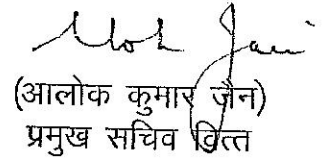 Alok Jain
(आलोक कुमार जैन)
प्रमुख सचिव वित्त